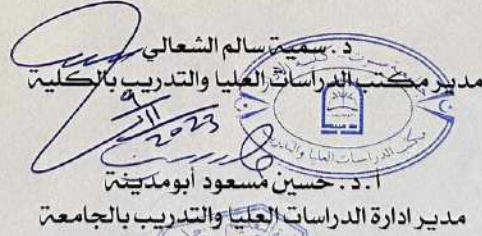 د. سمية سالم الشعالي
مدير مكتب الدراسات العليا والتدريب بالكلية
2023
مكتب الدراسات العليا والتدريب
أ.د. حسين مسعود أبومدينة
مدير ادارة الدراسات العليا والتدريب بالجامعة